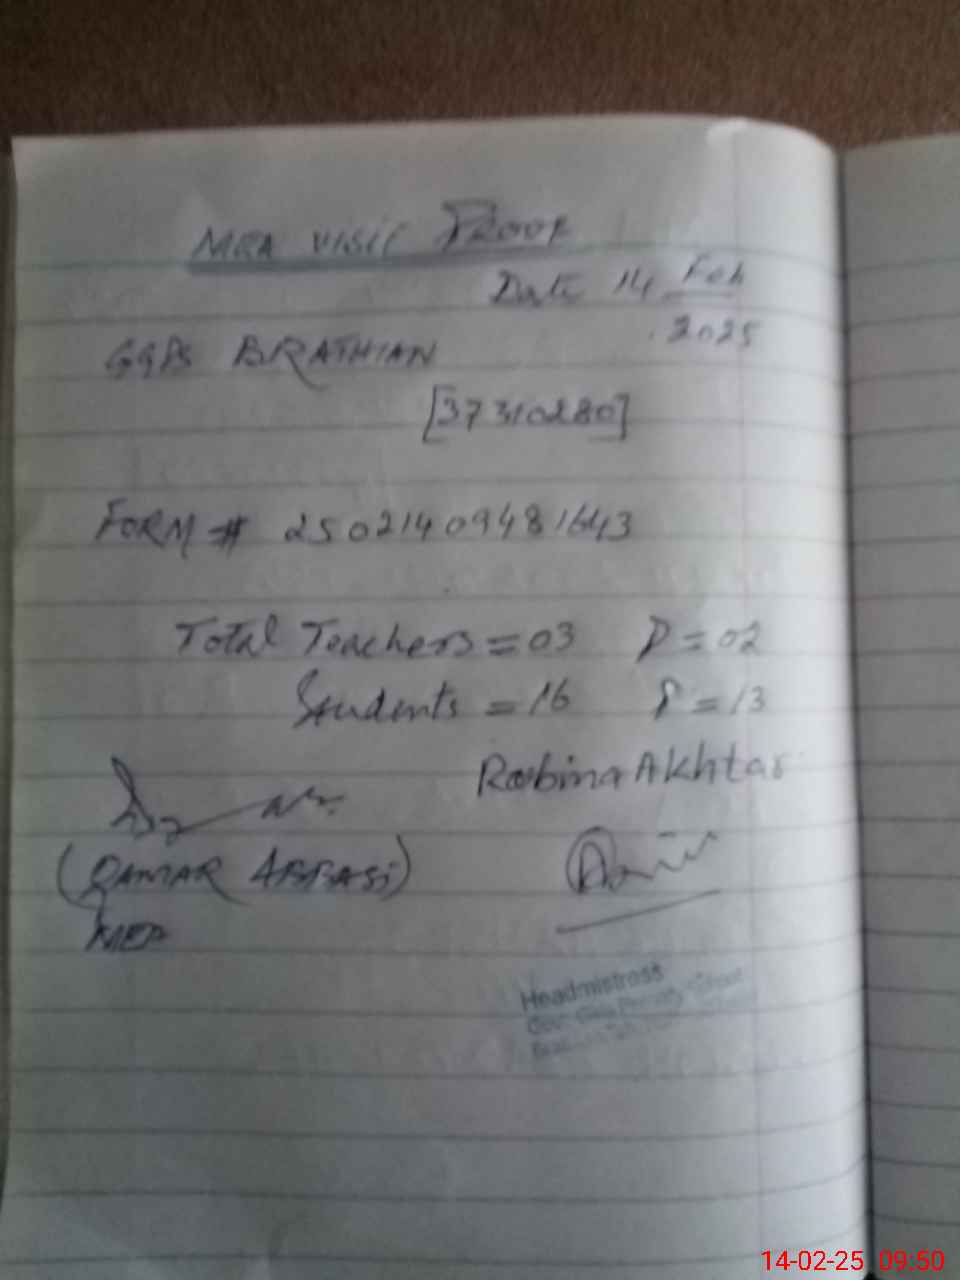 MEA VISIT PROOF
Date 14 Feb
2025
GGPS BRATHIAN
[37310280]
FORM # 25021409481643
Total Teachers = 03 P = 02
Students = 16 P = 13
Robina Akhtar
(QAMAR ABBASi)
MEA
Headmistress
Govt. Girls Primary School
14-02-25 09:50